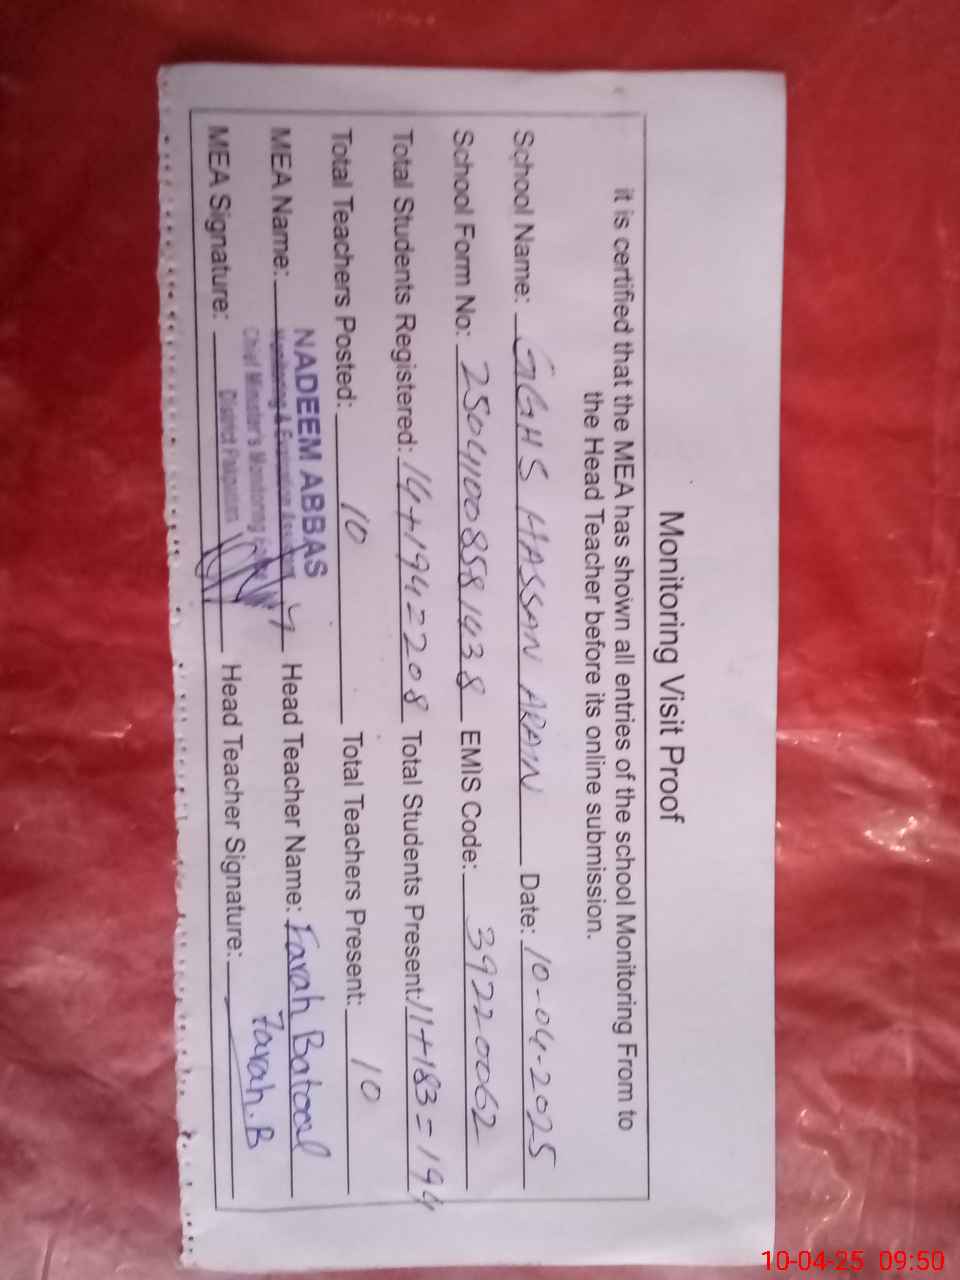 Monitoring Visit Proof
it is certified that the MEA has shown all entries of the school Monitoring From to
the Head Teacher before its online submission.
School Name: GGHS HASSAN ARAIN Date: 10-04-2025
School Form No: 25041008581438 EMIS Code: 39220062
Total Students Registered: 14+194=208 Total Students Present: 11+183=194
Total Teachers Posted: 10 Total Teachers Present: 10
MEA Name: NADEEM ABBAS Head Teacher Name: Farah Batool
Monitoring & Evaluation
Chief Minister's Monitoring
District Pakpattan
MEA Signature: Head Teacher Signature: Farah.B
10-04-25 09:50